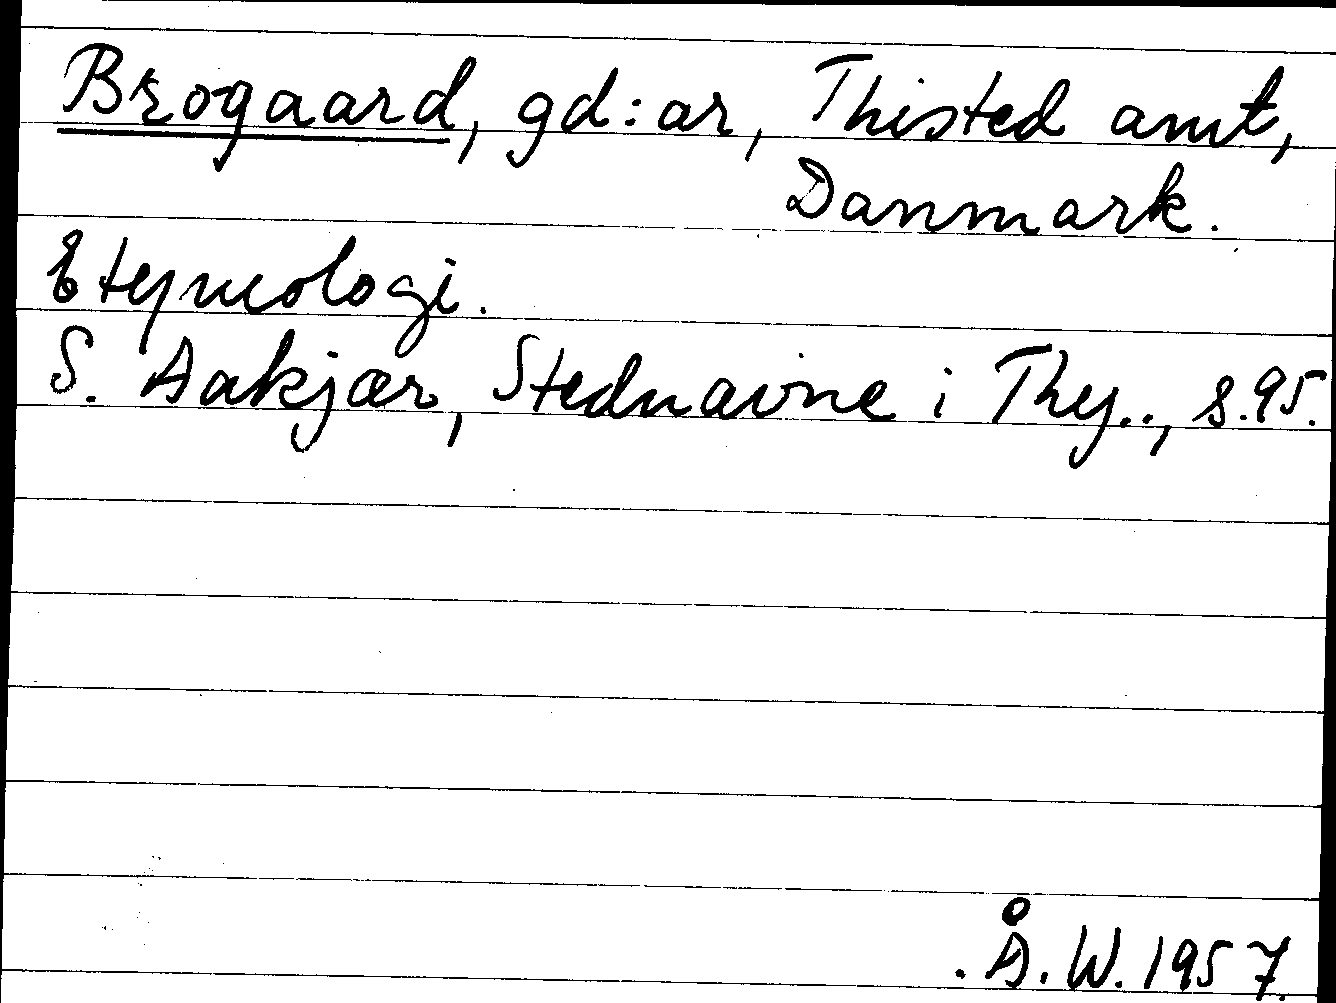 Brogaard, gd:ar, Thisted amt,
Danmark.
Etymologi.
S. Aakjær, Stednavne i Thy.., s.95.
Å.W. 1957.